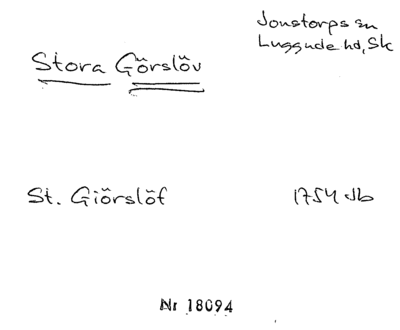 Jonstorps sn
Luggude hd, Sk
Stora Görslöv
St. Giörslöf 1754 Jb
Nr 18094